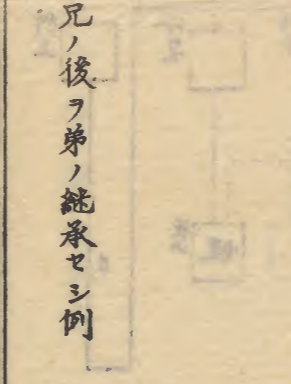 兄ノ後ヲ弟ノ継承セシ例